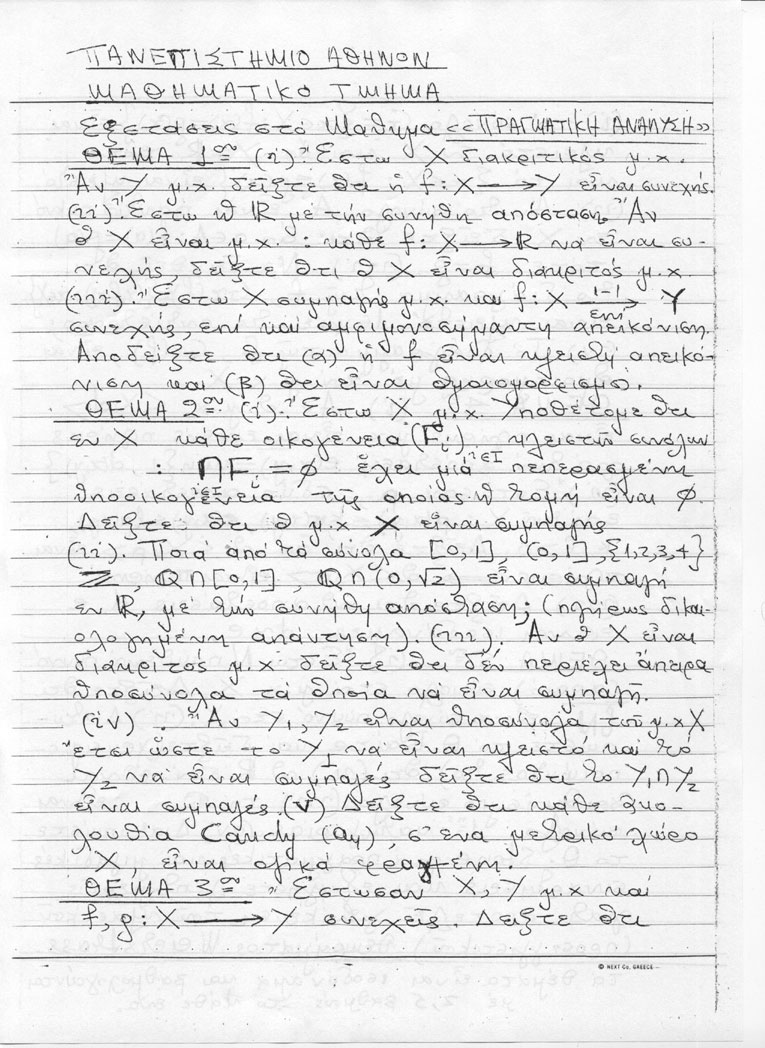 ΠΑΝΕΠΙΣΤΗΜΙΟ ΑΘΗΝΩΝ
ΜΑΘΗΜΑΤΙΚΟ ΤΜΗΜΑ
Εξετάσεις στό Μάθημα <<ΠΡΑΓΜΑΤΙΚΗ ΑΝΑΛΥΣΗ>>
ΘΕΜΑ 1ον (i) Ἔστω X διακριτικός μ.χ.
Ἄν Y μ.χ. δεῖξτε ὅτι ἡ f: X → Y εἶναι συνεχής.
(ii). Ἔστω ὁ ℝ μέ τήν συνήθη απόσταση. Ἄν
ὁ X εἶναι μ.χ. : κάθε f: X → ℝ νά εἶναι συ-
νεχής, δεῖξτε ὅτι ὁ X εἶναι διακριτός μ.χ.
(iii). Ἔστω X συμπαγής μ.χ. καί f: X 1-1 → επί Y
συνεχής, επί καί αμφιμονοσήμαντη απεικόνιση.
Αποδείξτε ὅτι (α) ἡ f εἶναι κλειστή απεικό-
νιση καί (β) ὅτι εἶναι ὁμοιομορφισμό.
ΘΕΜΑ 2ον (i). Ἔστω X μ.χ. Υποθέτομε ὅτι
εν X κάθε οικογένεια (Fi)i∈I κλειστών συνόλων
: ⋂i∈I Fi = ∅ ἔχει μιά πεπερασμένη
ὑποοικογένεια τῆς οποίας ἡ τομή εἶναι ∅.
Δεῖξτε ὅτι ὁ μ.χ X εἶναι συμπαγής
(ii). Ποιά από τά σύνολα [0,1], (0,1], {1,2,3,4}
ℤ, ℚ∩[0,1], ℚ∩(0,√2) εἶναι συμπαγή
εν ℝ, μέ τήν συνήθη απόσταση; (πλήρως δικαι-
ολογημένη απάντηση). (iii). Ἄν ὁ X εἶναι
διακριτός μ.χ. δεῖξτε ὅτι δέν περιέχει ἄπειρα
ὑποσύνολα τά ὁποία νά εἶναι συμπαγῆ.
(iv). Ἄν Y1, Y2 εἶναι ὑποσύνολα τοῦ μ.χ X
ἔτσι ὥστε το Y1 νά εἶναι κλειστό καί τό
Y2 νά εἶναι συμπαγές δεῖξτε ὅτι το Y1∩Y2
εἶναι συμπαγές. (v) Δεῖξτε ὅτι κάθε ἀκο-
λουθία Caudy (αν), σ' ενα μετρικό χώρο
X, εἶναι ολικά φραγμένη.
ΘΕΜΑ 3ον Ἔστωσαν X, Y μ.χ καί
f, g: X → Y συνεχεῖς. Δεῖξτε ὅτι
© NEXT Co. GREECE